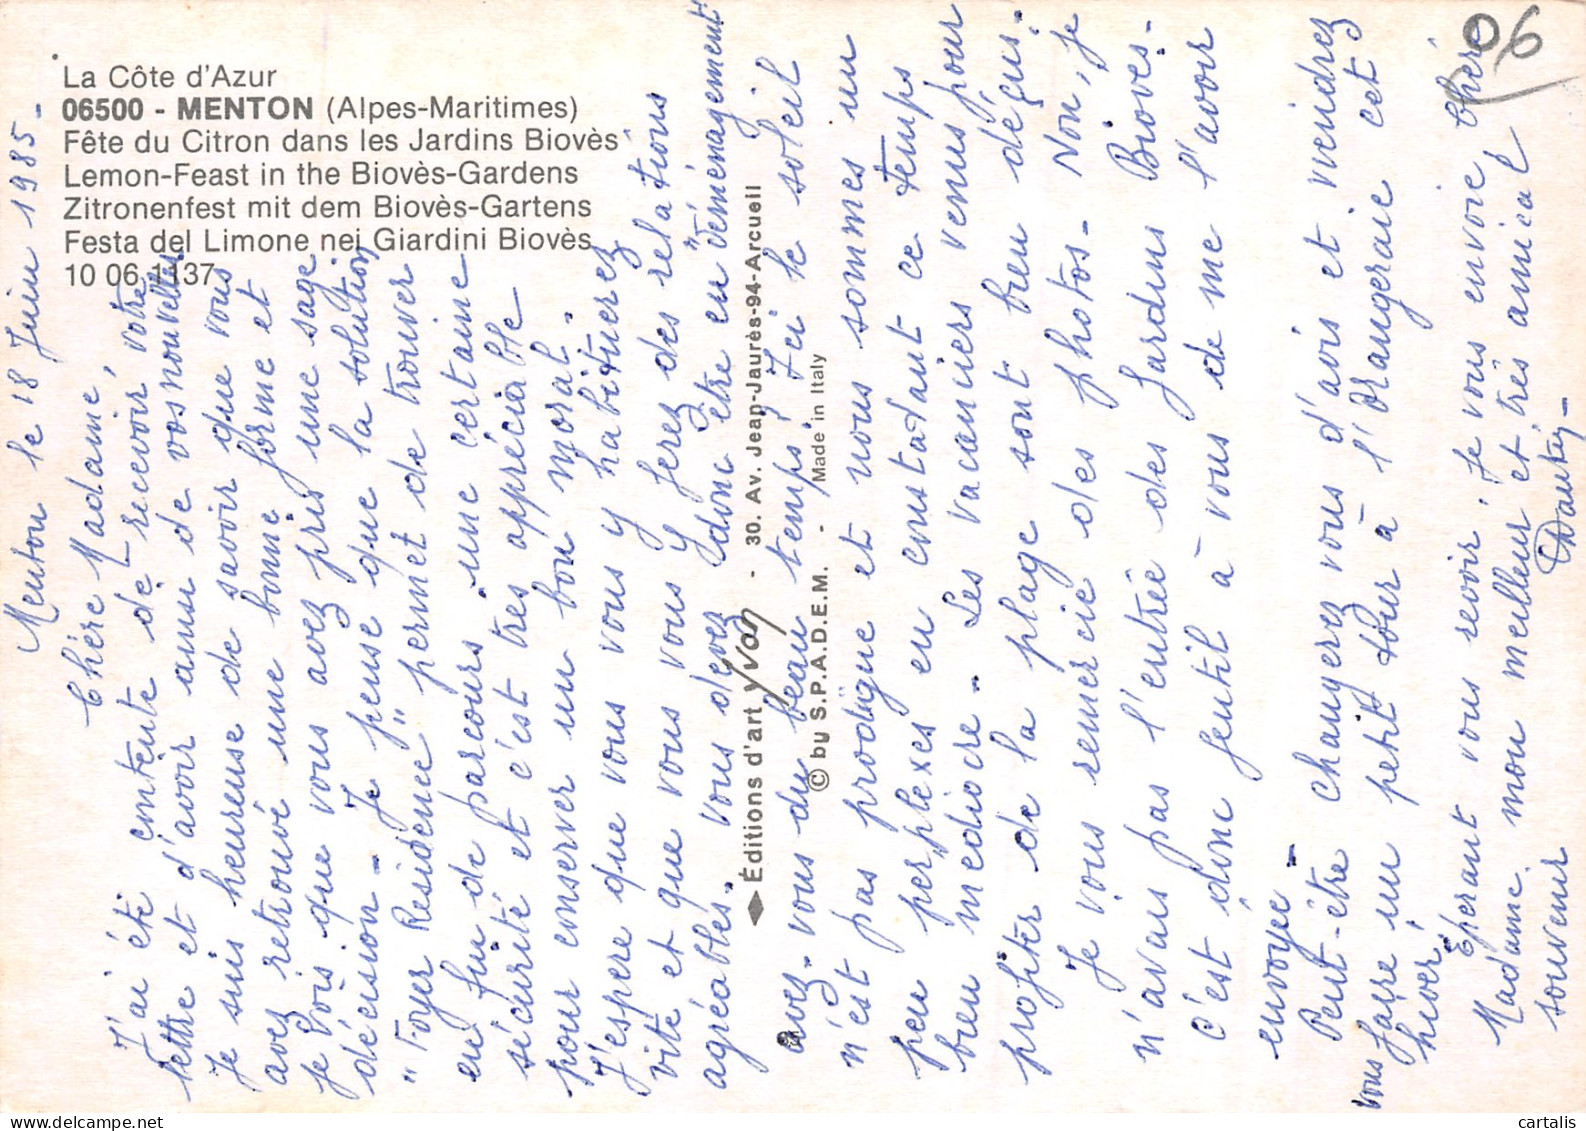 La Côte d'Azur
06500 - MENTON (Alpes-Maritimes)
Fête du Citron dans les Jardins Biovès
Lemon-Feast in the Biovès-Gardens
Zitronenfest mit dem Biovès-Gartens
Festa del Limone nei Giardini Biovès
10 06 1137
06
Menton le 18 Juin 1985 -
Chère Madame,
J'ai été contente de recevoir votre
lettre et d'avoir ainsi de vos nouvelles
Je suis heureuse de savoir que vous
avez retrouvé une bonne forme et
je vois que vous avez pris une sage
décision - Je pense que la solution
"Foyer Résidence" permet de trouver
en fin de parcours une certaine
sécurité et c'est très appréciable
pour conserver un bon moral.
J'espère que vous vous y habituerez
vite et que vous vous y ferez des relations
agréables. vous devez donc être en "déménagement"
avez-vous du beau temps, Ici le soleil
n'est pas prodigue et nous sommes un
peu perplexes en constatant ce temps
bien médiocre - Les vacanciers venus pour
profiter de la plage sont bien déçus.
Je vous remercie des photos - Non, je
n'avais pas l'entrée des Jardins Bioves -
c'est donc gentil à vous de me l'avoir
envoyée -
Peut-être changerez vous d'avis et viendrez
vous faire un petit tour à l'Orangeraie cet
hiver,
Espérant vous revoir, Je vous envoie Chère
Madame, mon meilleur et très amical
souvenir
◆ Éditions d'art Yvon - 30. Av. Jean-Jaurès-94-Arcueil
© by S.P.A.D.E.M. - Made in Italy
cartalis